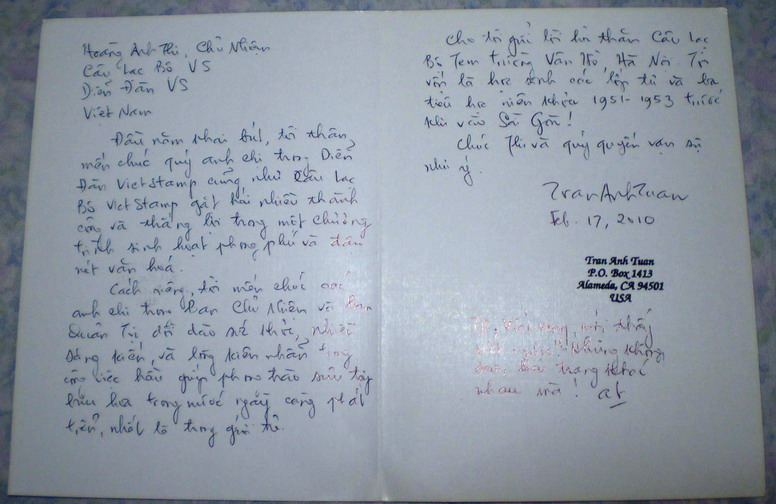 Hoàng Anh Thi, Chủ Nhiệm
Câu Lạc Bộ VS
Diễn Đàn VS
Việt Nam
Đầu năm khai bút, tôi thân
mến chúc quý anh chị trong Diễn
Đàn VietStamp cũng như Câu Lạc
Bộ VietStamp gặt hái nhiều thành
công và thắng lợi trong một chương
trình sinh hoạt phong phú và đậm
nét văn hoá.
Cách riêng, tôi mến chúc các
anh chị trong Ban Chủ Nhiệm và Ban
Quản Trị dồi dào sức khỏe, nhiều
sáng kiến, và lòng kiên nhẫn trong
công việc hầu giúp phong trào sưu tập
bưu hoa trong nước ngày càng phát
triển, nhất là trong giới trẻ.
Cho tôi gửi lời hỏi thăm Câu Lạc
Bộ Tem trường Vân Hồ, Hà Nội. Tôi
vốn là học sinh các lớp tư và ba
tiểu học niên khóa 1951-1953 trước
khi vào Sài Gòn!
Chúc Thi và quý quyến vạn sự
như ý.
TranAnhTuan
Feb. 17, 2010
Tran Anh Tuan
P.O. Box 1413
Alameda, CA 94501
USA
viết xong, mới thấy
ngược! Nhưng không
trang khác
nhau mà! at